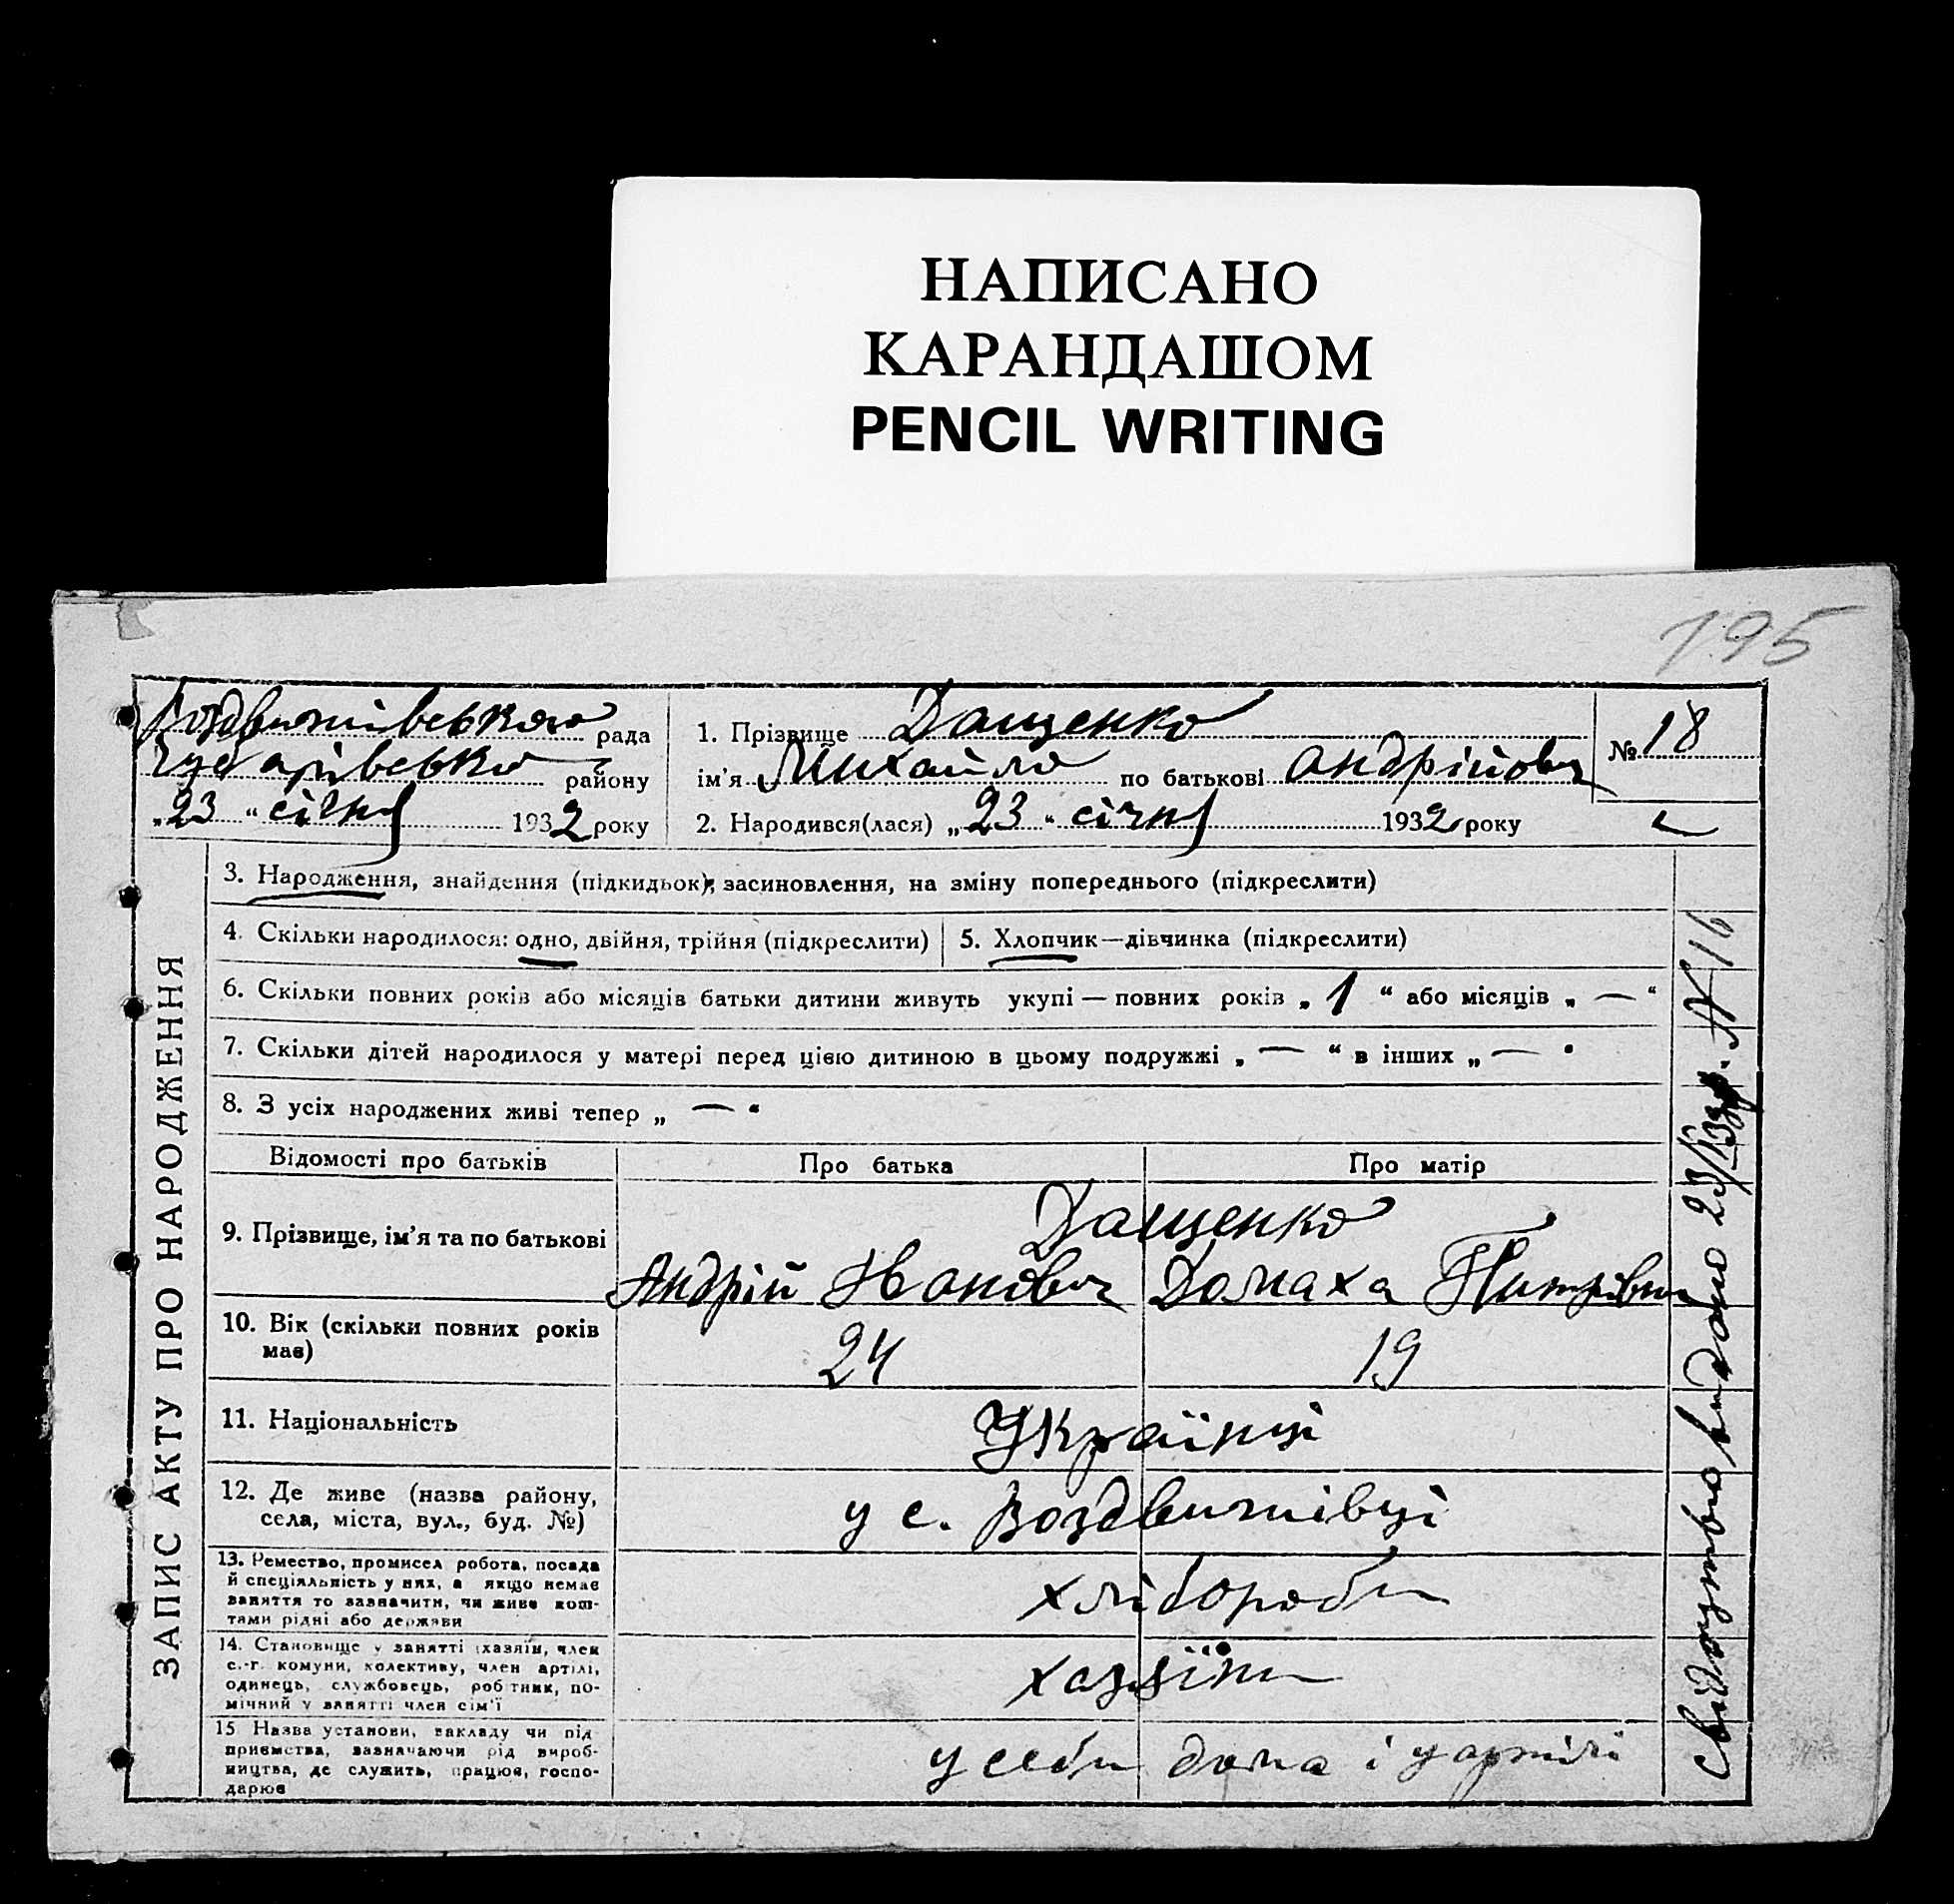 НАПИСАНО
КАРАНДАШОМ
PENCIL WRITING
195
Воздвижівською рада
району
„23“ січня 1932 року
1. Прізвище Дащенко
ім'я Михайло по батькові Андрійович
2. Народився(лася) „23“ січня 1932 року
№ 18
ЗАПИС АКТУ ПРО НАРОДЖЕННЯ
3. Народження, знайдення (підкидьок), засиновлення, на зміну попереднього (підкреслити)
4. Скільки народилося: одно, двійня, трійня (підкреслити)
5. Хлопчик—дівчинка (підкреслити)
6. Скільки повних років або місяців батьки дитини живуть укупі — повних років „1“ або місяців „—“
7. Скільки дітей народилося у матері перед цією дитиною в цьому подружжі „—“ в інших „—“
8. З усіх народжених живі тепер „—“
Відомості про батьків Про батька Про матір
9. Прізвище, ім'я та по батькові
Дащенко
Андрій Іванович Домаха Питрівна
10. Вік (скільки повних років має)
24 19
11. Національність
Українці
12. Де живе (назва району,
села, міста, вул., буд. №)
у с. Воздвижівці
13. Ремество, промисел робота, посада
й спеціяльність у них, а якщо немає
заняття то зазначити, чи живе кош-
тами рідні або держави
хлібороби
14. Становище у занятті (хазяїн, член
с.-г. комуни, колективу, член артілі,
одинець, службовець, робітник, по-
мічний у занятті член сім'ї
хазяїни
15. Назва установи, закладу чи під
приємства, зазначаючи рід вироб-
ництва, де служить, працює, госпо-
дарює
у себи дома і у артілі
Свідоцтво видано 23/I 32р. № 16